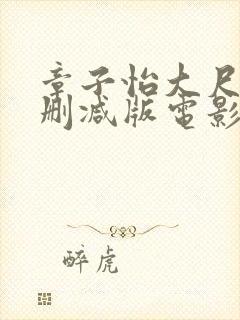 章子怡大尺
删减版电影
醉虎